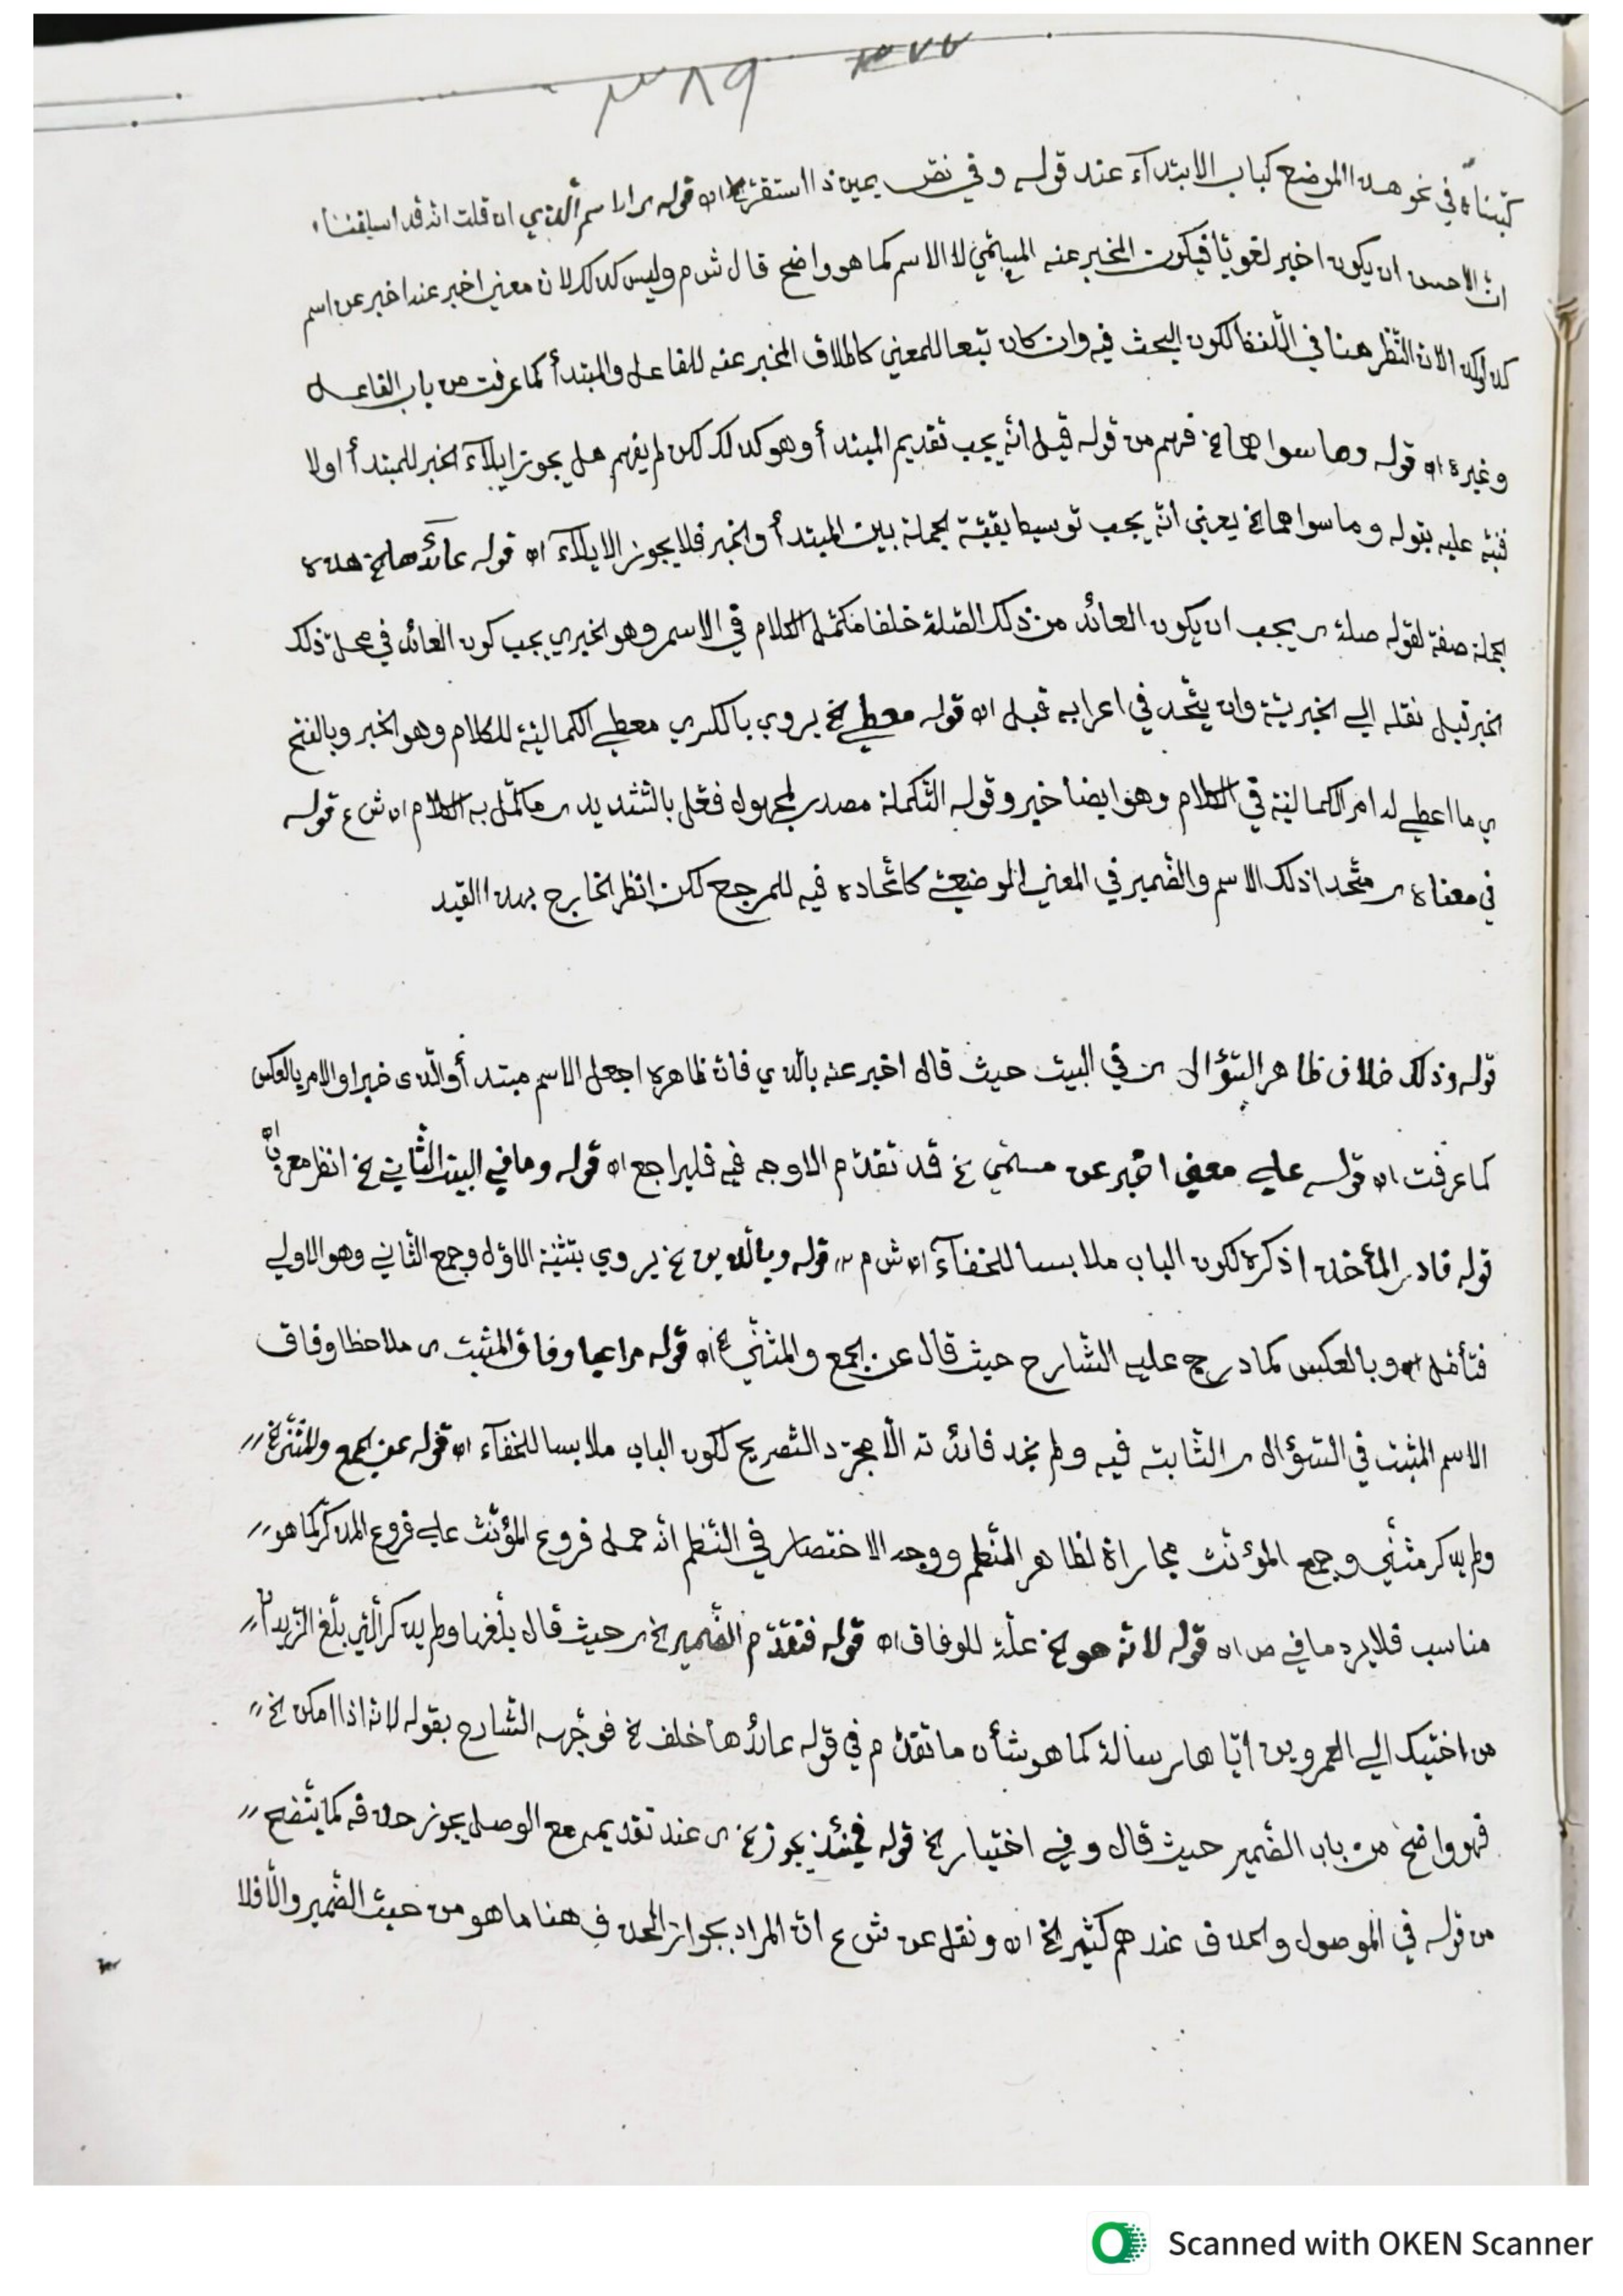 ٣٨٩
كتبناه في نحو هذا الموضع كباب الابتدآء عند قوله وفي نص يمين ذا استقر اه قوله الاسم الذي ان قلت انه قد اسلفنا
ان الاحسن ان يكون اخبر لغويا فيكون المخبر عنه المسمّي لا الاسم كما هو واضح قال ش م وليس كذلك لان معني اخبر عنه اخبر عن اسم
كذلك الا ان النّظر هنا في اللّفظ لكون البحث فيه وان كان تبعا للمعني كاطلاق المخبر عنه للفاعل والمبتدأ كما عرفت من باب الفاعل
وغيره اه قوله وما سواهما الخ فهم من قوله قبل انّه يجب تقديم المبتدأ وهو كذلك لكن لم يفهم هل يجوز ايلآء الخبر للمبتدأ اولا
فنبّه عليه بقوله وما سواهما الخ يعني انّه يجب توسيط بقيّة الجملة بين المبتدأ والخبر فلا يجوز الايلآء اه قوله عآئدها الخ هذه
الجملة صفة لقوله صلة ى يجب ان يكون العائد من ذلك الصّلة خلفا مكمّل الكلام في الاسم وهو الخبر ي يجب كون العائد في محلّ ذلك
الخبر قبل نقله الي الخبريّة وان يتّحد في اعرابه قبل اه قوله معطي الخ يروي بالكسر ي معطي الكماليّة للكلام وهو الخبر وبالفتح
ي ما اعطي له امر الكماليّة في الكلام وهو ايضا خبر وقوله التّكملة مصدر لمجهول فعّل بالتّشديد ى ما كمّل به الكلام اه ش ع قوله
في معناه ى متّحدا ذلك الاسم والضّمير في المعني الموضعيّ كاتّحاده فيه للمرجع لكن انظر الخارج بهذا القيد
قوله وذلك خلاف ظاهر السّؤال ى في البيت حيث قال اخبر عنه بالّذي فان ظاهره اجعل الاسم مبتدأ والّذى خبرا والامر بالعكس
كما عرفت اه قوله علي معني اخبر عن مسمّي الخ قد تقدّم الاوجه فيه فليراجع اه قوله وما في البيت الثّاني الخ انظر معربا اه
قوله فادر المأخذ اذكره لكون الباب ملابسا للخفآء اه ش م قوله وبالّذين الخ يروي بتثنية الاوّل وجمع الثّاني وهو الاولي
فتأمّل اه وبالعكس كما درج عليه الشّارح حيث قال عن الجمع والمثنّي الخ اه قوله مراعيا وفاق المثبت ى ملاحظا وفاق
الاسم المثبت في السّؤال ى الثّابت فيه ولم نجد فائدته الّا مجرّد التّصريح لكون الباب ملابسا للخفآء اه قوله عن الجمع والمثنّي الخ
ولم يذكر مثنّي وجمع المؤنّث مجاراة لظاهر النّظم ووجه الاختصار في النّظم انّه حمل فروع المؤنّث علي فروع المذكّر كما هو
مناسب فلا يرد ما في ص اه قوله لانّه هو الخ علّة للوفاق اه قوله فتقدّم الضّمير الخ ى حيث قال بلّغها ولم يذكر الّتي بلّغ الزّيدان
من اختيك الي العمرين ايّاها رسالة كما هو شأن ما تقدّم في قوله عائدها خلف الخ فوجّهه الشّارح بقوله لانّه اذا امكن الخ
فهو واضح من باب الضّمير حيث قال وفي اختيار الخ قوله فحينئذ يجوز الخ ى عند تقديمه مع الوصل يجوز حذفه كما يتّضح
من قوله في الموصول والحذف عندهم كثير الخ اه ونقل عن ش ع ان المراد بجواز الحذف هنا ما هو من حيث الضّمير والّا فلا
Scanned with OKEN Scanner